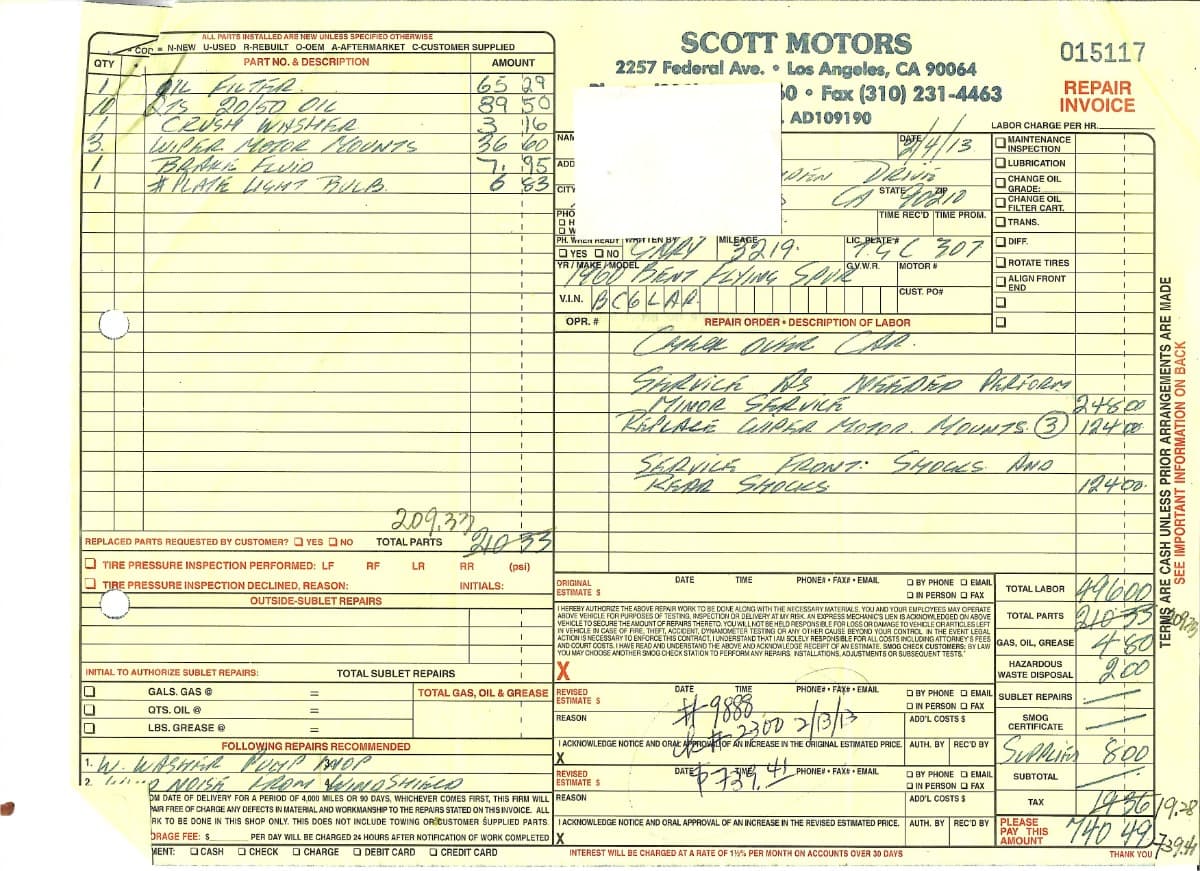 ALL PARTS INSTALLED ARE NEW UNLESS SPECIFIED OTHERWISE
N-NEW U-USED R-REBUILT O-OEM A-AFTERMARKET C-CUSTOMER SUPPLIED
QTY PART NO. & DESCRIPTION AMOUNT
1 OIL FILTER. 65 29
10 QTS 20/50 OIL 89 50
1 CRUSH WASHER 3 16
3. WIPER MOTOR MOUNTS 36 60
1 BRAKE FLUID 7. 95
1 # PLATE LIGHT BULB. 6 83
209.33
REPLACED PARTS REQUESTED BY CUSTOMER? YES NO TOTAL PARTS 210 33
TIRE PRESSURE INSPECTION PERFORMED: LF RF LR RR (psi)
TIRE PRESSURE INSPECTION DECLINED, REASON: INITIALS:
OUTSIDE-SUBLET REPAIRS
INITIAL TO AUTHORIZE SUBLET REPAIRS: TOTAL SUBLET REPAIRS
GALS. GAS @ = TOTAL GAS, OIL & GREASE
QTS. OIL @ =
LBS. GREASE @ =
FOLLOWING REPAIRS RECOMMENDED
1. W. WASHER PUMP INOP
2. NOISE FROM WINDSHIELD
DATE OF DELIVERY FOR A PERIOD OF 4,000 MILES OR 90 DAYS, WHICHEVER COMES FIRST, THIS FIRM WILL
FREE OF CHARGE ANY DEFECTS IN MATERIAL AND WORKMANSHIP TO THE REPAIRS STATED ON THIS INVOICE. ALL
TO BE DONE IN THIS SHOP ONLY. THIS DOES NOT INCLUDE TOWING OR CUSTOMER SUPPLIED PARTS.
FEE: $ PER DAY WILL BE CHARGED 24 HOURS AFTER NOTIFICATION OF WORK COMPLETED
CASH CHECK CHARGE DEBIT CARD CREDIT CARD
SCOTT MOTORS
2257 Federal Ave. • Los Angeles, CA 90064
60 • Fax (310) 231-4463
AD109190
015117
REPAIR
INVOICE
LABOR CHARGE PER HR.
DATE 2/4/13
DRIVE
CITY CA STATE 90210 ZIP
TIME REC'D TIME PROM.
PH. WHEN READY YES NO WRITTEN BY GARY MILEAGE 3219. LIC. PLATE # TGC 307
YR / MAKE / MODEL 1960 BENT FLYING SPUR G.V.W.R. MOTOR #
V.I.N. BC6LAR CUST. PO#
MAINTENANCE INSPECTION
LUBRICATION
CHANGE OIL GRADE:
CHANGE OIL FILTER CART.
TRANS.
DIFF.
ROTATE TIRES
ALIGN FRONT END
OPR. # REPAIR ORDER • DESCRIPTION OF LABOR
CHECK OVER CAR.
SERVICE AS NEEDED PERFORM
MINOR SERVICE 248 00
REPLACE WIPER MOTOR. MOUNTS. 3 124 00
SERVICE FRONT: SHOCKS AND
REAR SHOCKS 124 00.
ORIGINAL ESTIMATE $ DATE TIME PHONE# • FAX# • EMAIL BY PHONE EMAIL IN PERSON FAX
I HEREBY AUTHORIZE THE ABOVE REPAIR WORK TO BE DONE ALONG WITH THE NECESSARY MATERIALS. YOU AND YOUR EMPLOYEES MAY OPERATE
ABOVE VEHICLE FOR PURPOSES OF TESTING, INSPECTION OR DELIVERY AT MY RISK. AN EXPRESS MECHANIC'S LIEN IS ACKNOWLEDGED ON ABOVE
VEHICLE TO SECURE THE AMOUNT OF REPAIRS THERETO. YOU WILL NOT BE HELD RESPONSIBLE FOR LOSS OR DAMAGE TO VEHICLE OR ARTICLES LEFT
IN VEHICLE IN CASE OF FIRE, THEFT, ACCIDENT, DYNAMOMETER TESTING OR ANY OTHER CAUSE BEYOND YOUR CONTROL. IN THE EVENT LEGAL
ACTION IS NECESSARY TO ENFORCE THIS CONTRACT, I UNDERSTAND THAT I AM SOLELY RESPONSIBLE FOR ALL COSTS INCLUDING ATTORNEY'S FEES
AND COURT COSTS. I HAVE READ AND UNDERSTAND THE ABOVE AND ACKNOWLEDGE RECEIPT OF AN ESTIMATE. SMOG CHECK CUSTOMERS: BY LAW
YOU MAY CHOOSE ANOTHER SMOG CHECK STATION TO PERFORM ANY REPAIRS, INSTALLATIONS, ADJUSTMENTS OR SUBSEQUENT TESTS."
X
REVISED ESTIMATE $ DATE TIME PHONE# • FAX# • EMAIL BY PHONE EMAIL IN PERSON FAX
#9888
REASON ADD'L COSTS $
ck# 2300 2/13/13
I ACKNOWLEDGE NOTICE AND ORAL APPROVAL OF AN INCREASE IN THE ORIGINAL ESTIMATED PRICE. AUTH. BY REC'D BY
X
REVISED ESTIMATE $ DATE TIME PHONE# • FAX# • EMAIL BY PHONE EMAIL IN PERSON FAX
$739.41
REASON ADD'L COSTS $
I ACKNOWLEDGE NOTICE AND ORAL APPROVAL OF AN INCREASE IN THE REVISED ESTIMATED PRICE. AUTH. BY REC'D BY
X
INTEREST WILL BE CHARGED AT A RATE OF 1½% PER MONTH ON ACCOUNTS OVER 30 DAYS
TOTAL LABOR 496 00
TOTAL PARTS 210 33 209.33
GAS, OIL, GREASE 4 80
HAZARDOUS WASTE DISPOSAL 2 00
SUBLET REPAIRS —
SMOG CERTIFICATE —
SUPPLIES 8 00
SUBTOTAL —
TAX 19 36 19.28
PLEASE PAY THIS AMOUNT 740 49 739.41
THANK YOU
TERMS ARE CASH UNLESS PRIOR ARRANGEMENTS ARE MADE
SEE IMPORTANT INFORMATION ON BACK